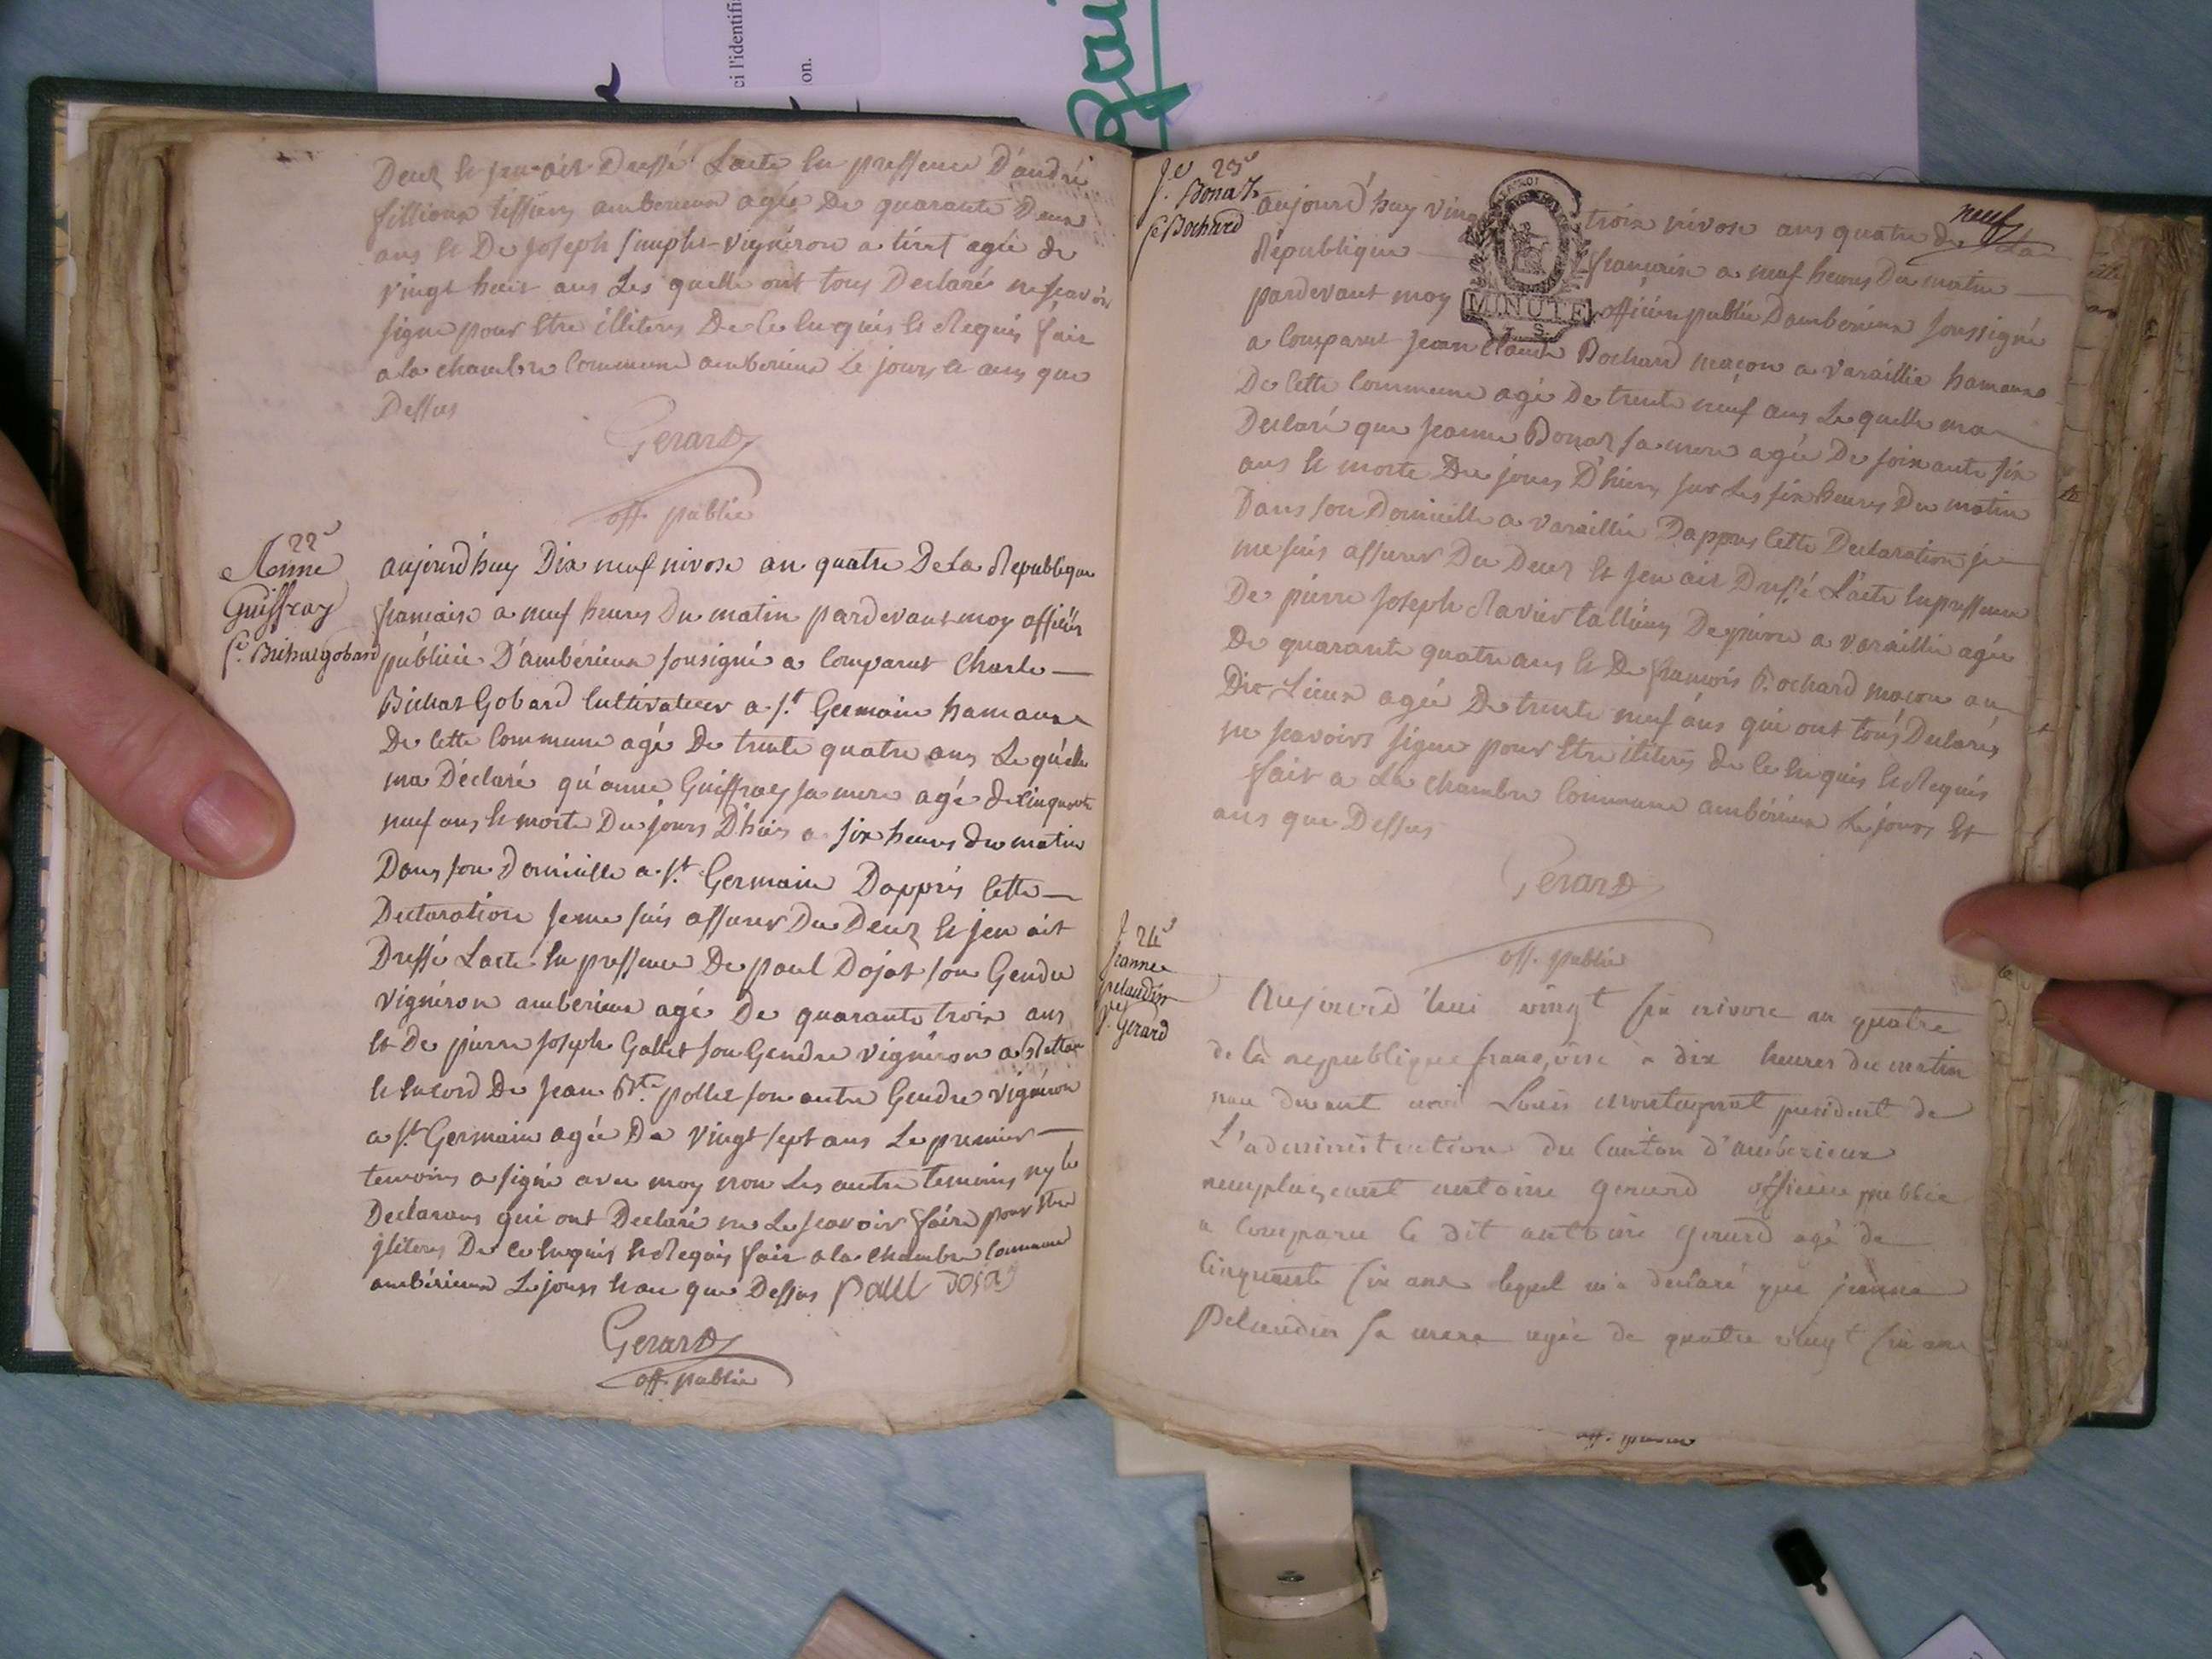 ci l'identifi
on.
Deux et jen ait Dressé Lacte En pressence D'andré
fillioux tissieux amberieux agée De quarante Deux
ans et De joseph simphe vignéron a tiret agée de
vingt huit ans Les quelle ont tous Declarés ne scavoir
signe pour être illiteres De ce Enquis et Requis fait
a la chambre Commune amberieux Le jours et ans que
Dessus
Gerard
off. public
22e
Anne
Guiffray
fe. Bichat gobard
aujourd'huy Dix neuf nivose an quatre De La Republique
francaise a neuf heures Du matin pardevant moy officiér
públicie D'ambérieux sousigné a Comparut Charle
Bichat Gobard Cultivateur a St Germain hameaux
De Cette Commune agé De trente quatre ans Le quélle
ma Déclaré qu'anne Guiffray sa mere agé de Cinquante
neuf ans et morte Du jours D'hièr a six heures du matin
Dans son Domicille a St Germain D'apprés Cette
Declaration Je me suis assurer Du Deux et jen ait
Dressé Lacte En pressence De paul Dojat son Gendre
vignéron amberieux agé De quarante trois ans
et De pierre joseph Gallet son Gendre vignéron a
et Encord De jean Bte. pollet son autre Gendre vigneron
a St Germain agée De vingt sept ans Le premier
temoins a signé avec moy non Les autre temoins ny le
Declarans qui ont Declaré ne Le scavoir faire pour être
jliteres De ce Enquis et Requis fait a la chambre Commune
ambérieux Le jours et an que Dessus paul dojat
Gerard
off. public
23e
Je. Bonaz
fe Bochard
neuf
MINUTE
aujourd'huy vingt trois nivose ans quatre de La
Republique française a neuf heures Du matin
pardevant moy officier public D'amberieux soussigné
a Comparut Jean Claude Bochard maçon a varaillie hameaux
De Cette Commune agé De trente neuf ans Le quelle ma
Declaré que jeanne Bonaz sa mere agée De soixante six
ans et morte Du jours D'hiers sur Les six heures Du matin
Dans son Domicille a varaillie Dappres Cette Declaration je
me suis assurer Du Deux et jen ait Dressé L'acte En pressence
De pierre joseph Ravier De pierre a varaillie agée
De quarante quatre ans et De francois Bochard macon au
Dit Lieux agée De trente neuf ans qui ont tous Declarés
ne scavoirs signe pour Etre iliteres de Ce Enquis et Requis
fait a La Chambre Commune ambérieux Le jours Et
ans que Dessus
Gerard
off. public
24e
jeanne
pelaudin
fe. Gerard
Aujourd'hui vingt six nivose an quatre
de la republique françoise a dix heures du matin
par devant moi Louis montagnat president de
L'administration du Canton d'amberieux
remplaçant antoine gerard officier public
a Comparu le dit antoine gerard agé de
Cinquante six ans lequel m'a declaré que jeanne
Pelaudin sa mere agée de quatre vingt six ans